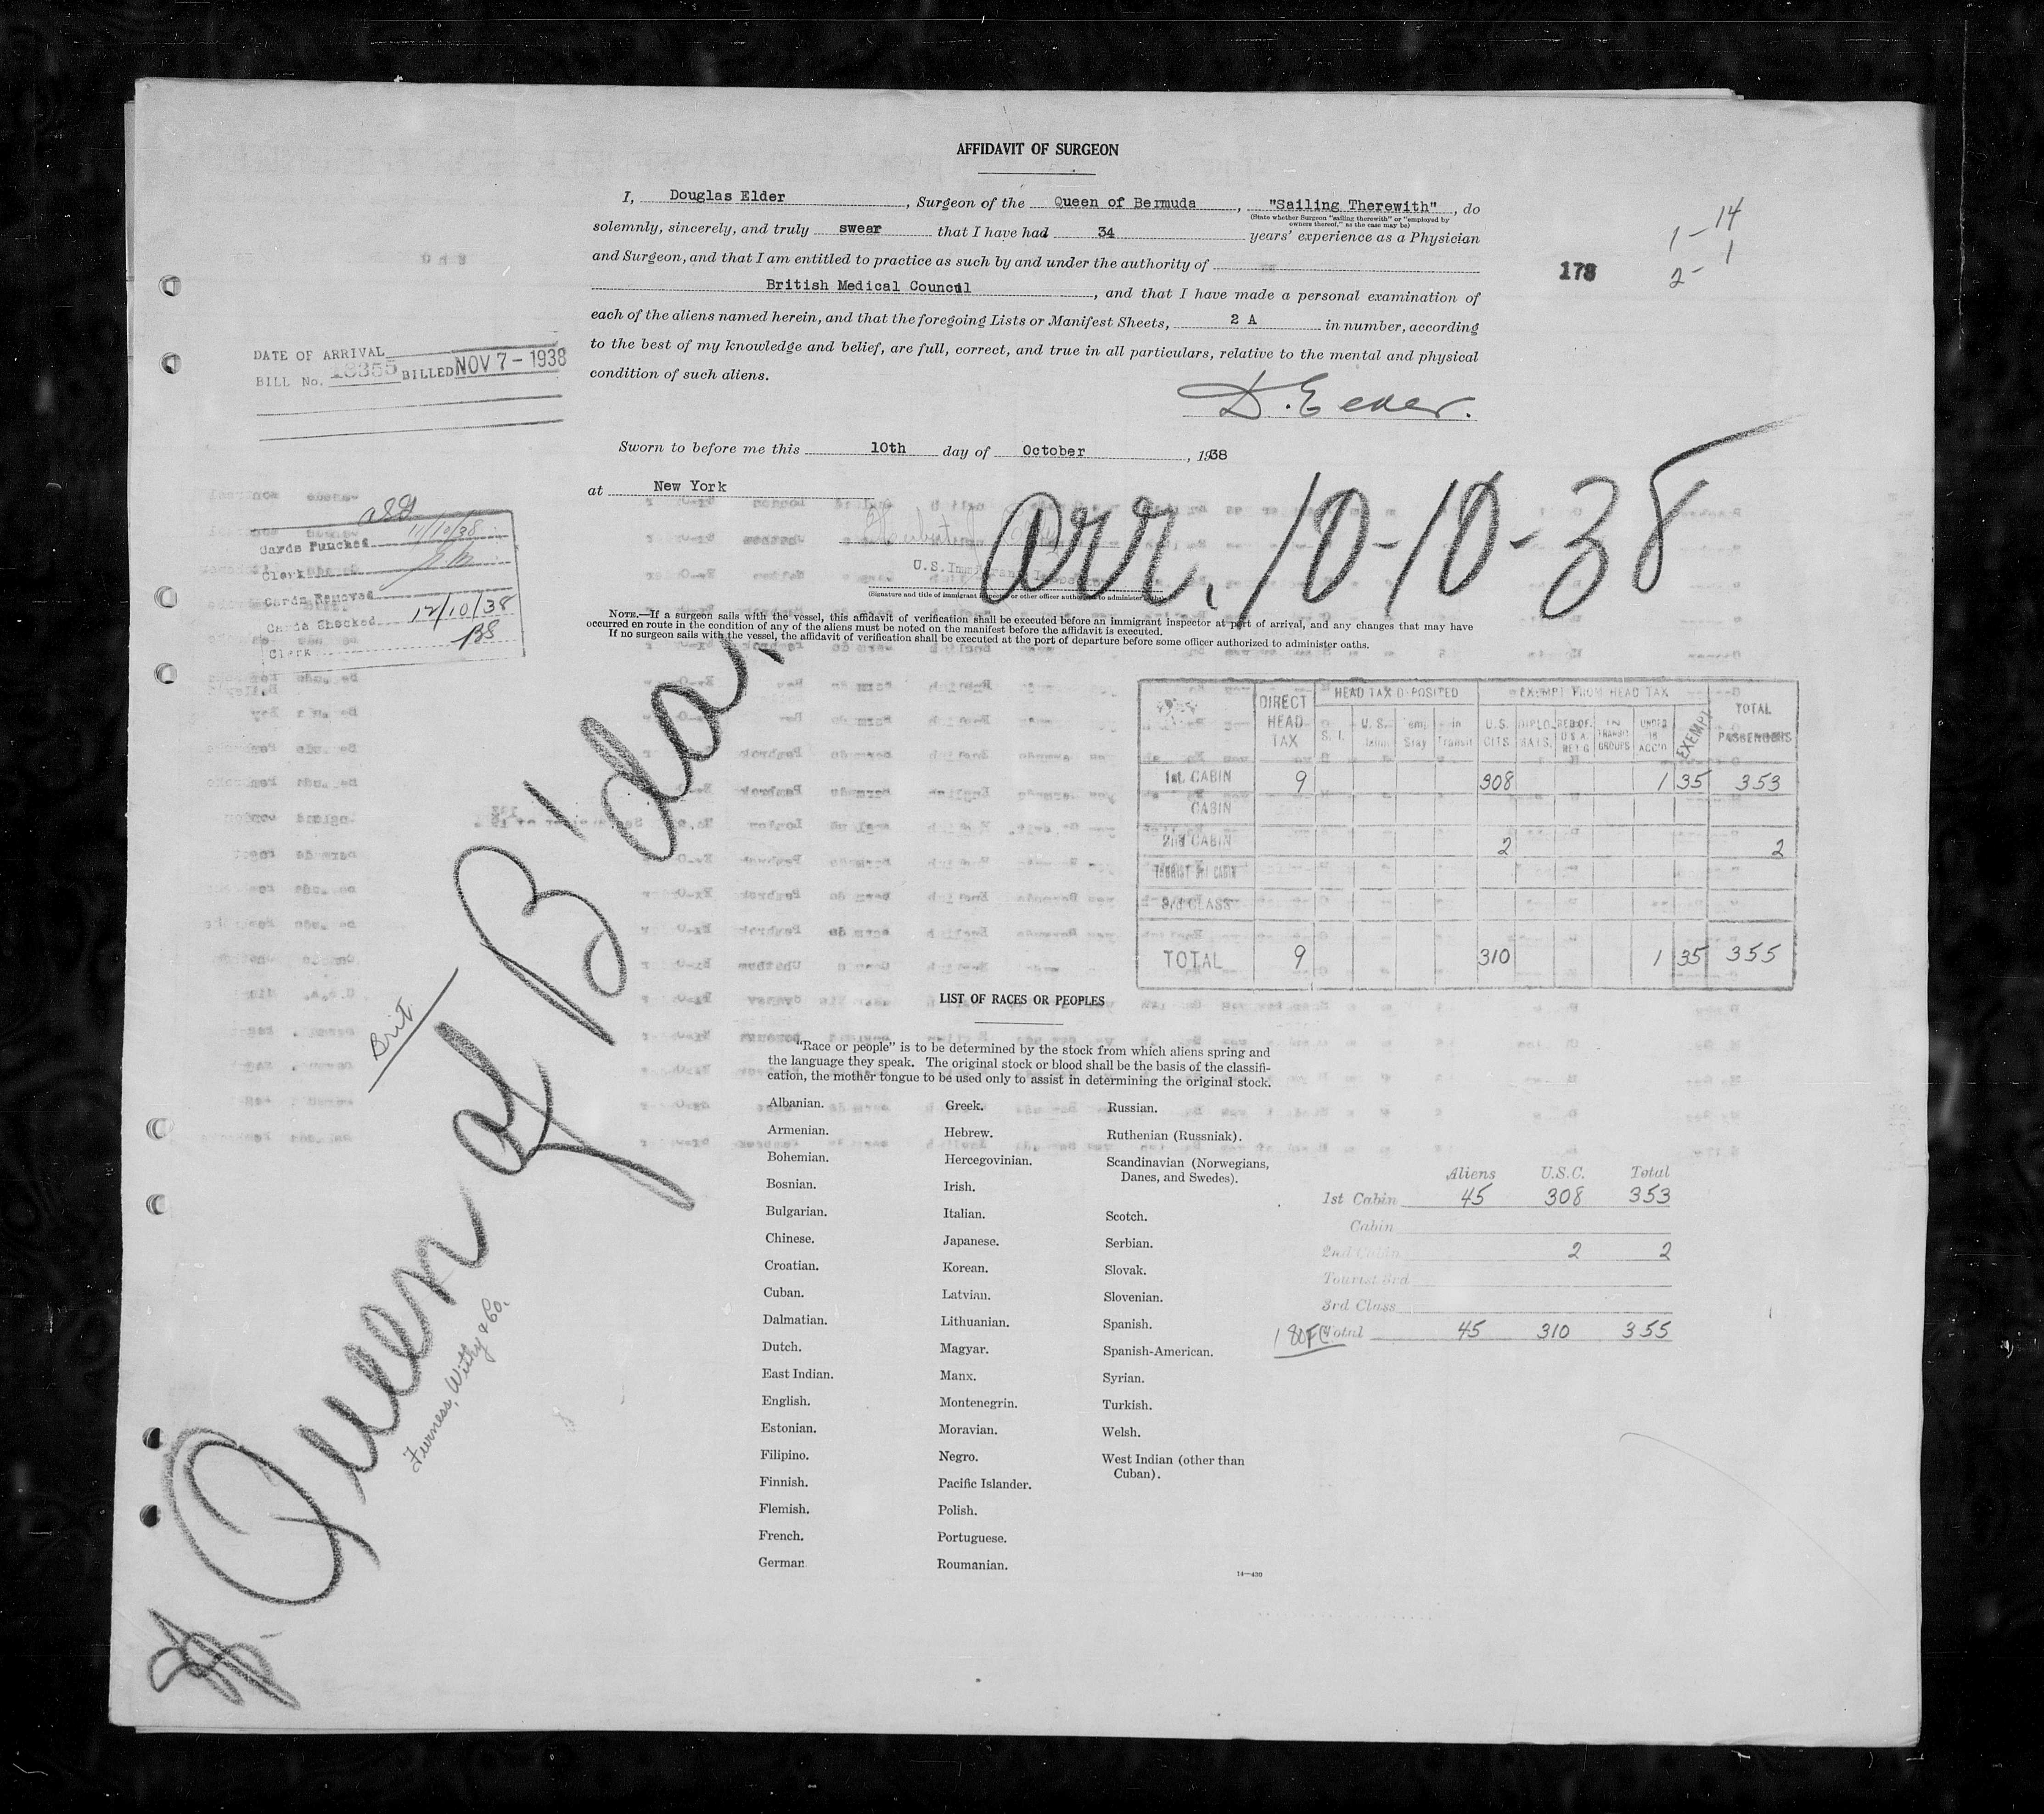 AFFIDAVIT OF SURGEON
I, Douglas Elder, Surgeon of the Queen of Bermuda, "Sailing Therewith", do
(State whether Surgeon "sailing therewith" or "employed by
owners thereof," as the case may be)
solemnly, sincerely, and truly swear that I have had 34 years' experience as a Physician
and Surgeon, and that I am entitled to practice as such by and under the authority of
British Medical Council, and that I have made a personal examination of
each of the aliens named herein, and that the foregoing Lists or Manifest Sheets, 2 A in number, according
to the best of my knowledge and belief, are full, correct, and true in all particulars, relative to the mental and physical
condition of such aliens.
D. Elder.
178
1 - 14
2 - 1
DATE OF ARRIVAL
BILL No. 19355 BILLED NOV 7 - 1938
Sworn to before me this 10th day of October, 1938
at New York
arr. 10-10-38
Cards Punched 11/10/38
Clerk
Cards Removed
Cards Checked 12/10/38
Clerk BS
NOTE.—If a surgeon sails with the vessel, this affidavit of verification shall be executed before an immigrant inspector at port of arrival, and any changes that may have
occurred en route in the condition of any of the aliens must be noted on the manifest before the affidavit is executed.
If no surgeon sails with the vessel, the affidavit of verification shall be executed at the port of departure before some officer authorized to administer oaths.
DIRECT HEAD TAX HEAD TAX DEPOSITED EXEMPT FROM HEAD TAX TOTAL PASSENGERS
S. I. U. S. Tem. Stay in Transit U.S. CITS DIPLOMATS. RED OF. U.S.A. RET'G IN TRANSIT GROUPS UNDER 16 ACC'D EXEMPT
1st. CABIN 9 308 1 35 353
CABIN
2nd CABIN 2 2
TOURIST 3rd CABIN
3rd CLASS
TOTAL 9 310 1 35 355
Queen of B'da.
Brit
Furness, Withy & Co.
LIST OF RACES OR PEOPLES
"Race or people" is to be determined by the stock from which aliens spring and
the language they speak. The original stock or blood shall be the basis of the classifi-
cation, the mother tongue to be used only to assist in determining the original stock.
Albanian. Greek. Russian.
Armenian. Hebrew. Ruthenian (Russniak).
Bohemian. Hercegovinian. Scandinavian (Norwegians,
Danes, and Swedes).
Bosnian. Irish.
Bulgarian. Italian. Scotch.
Chinese. Japanese. Serbian.
Croatian. Korean. Slovak.
Cuban. Latvian. Slovenian.
Dalmatian. Lithuanian. Spanish.
Dutch. Magyar. Spanish-American.
East Indian. Manx. Syrian.
English. Montenegrin. Turkish.
Estonian. Moravian. Welsh.
Filipino. Negro. West Indian (other than
Cuban).
Finnish. Pacific Islander.
Flemish. Polish.
French. Portuguese.
German Roumanian.
14—430
Aliens U.S.C. Total
1st Cabin 45 308 353
Cabin
2nd Cabin 2 2
Tourist 3rd
3rd Class
Total 45 310 355